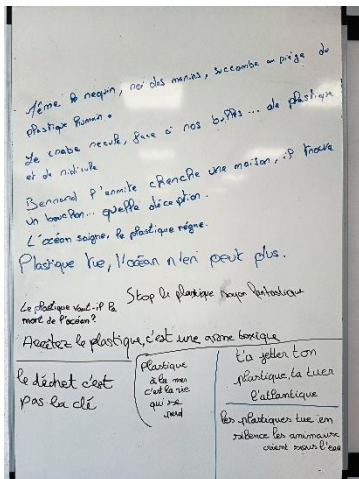 Même le requin, roi des mers, succombe au piège du
plastique humain.
Le crabe recule, face à nos bulles... de plastique
et de ridicule
Bernard l'ermite cherche une maison, il trouve
un bouchon... quelle déception.
L'océan saigne, le plastique règne.
Plastique tue, l'océan n'en peut plus.
Stop le plastique soyon fantastique
Le plastique vaut-il la
mort de l'océan?
Arretez le plastique, c'est une arme toxique
le déchet c'est
pas la clé
Plastique
à la mer
c'est la vie
qui se
perd
t'a jetter ton
plastique, ta tuer
l'atlantique
les plastiques tue en
silence les animaux
crient sous l'eau